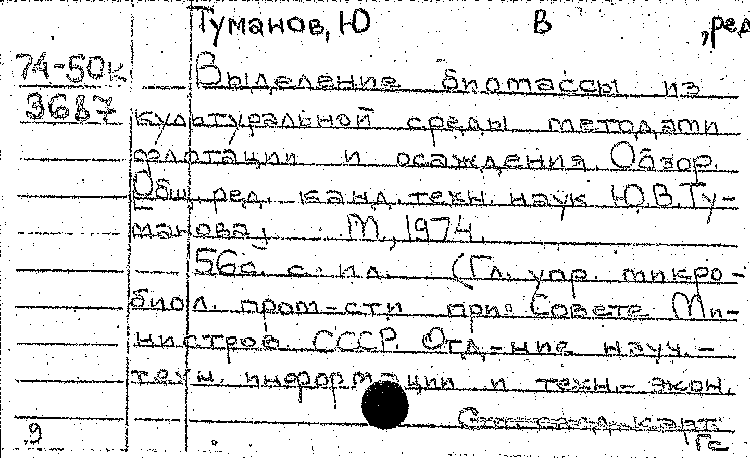 Туманов, Ю В , ред
74-50к Выделение биомассы из
3687 культуральной среды методами
флотации и осаждения. Обзор.
Общ. ред. канд. техн. наук Ю.В. Ту-
манова, М., 1974.
56с. с ил. (Гл. упр. микро-
биол. пром-сти при Совете Ми-
нистров СССР. Отд-ние науч.-
техн. информации и техн.-экон.
9